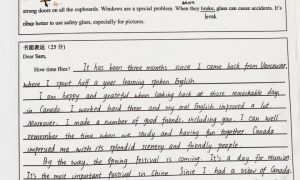 strong doors on all the cupboards. Windows are a special problem. When they broke, glass can cause accidents. It's
break
better to use safety glass, especially for pictures.
书面表达 (25 分)
Dear Sam,
How time flies! It has been three months since I came back from Vancouver,
where I spent half a year learning spoken English.
I am happy and grateful when looking back at those remarkable days
in Canada. I worked hard there and my oral English improved a lot.
Moreover, I made a number of good friends, including you. I can well
remember the time when we study and having fun together. Canada
impressed me with its splendid scenery and friendly people.
By the way, the Spring Festival is coming. It's a day for reunion.
It's the most important festival in China. Since I had a view of Canada,